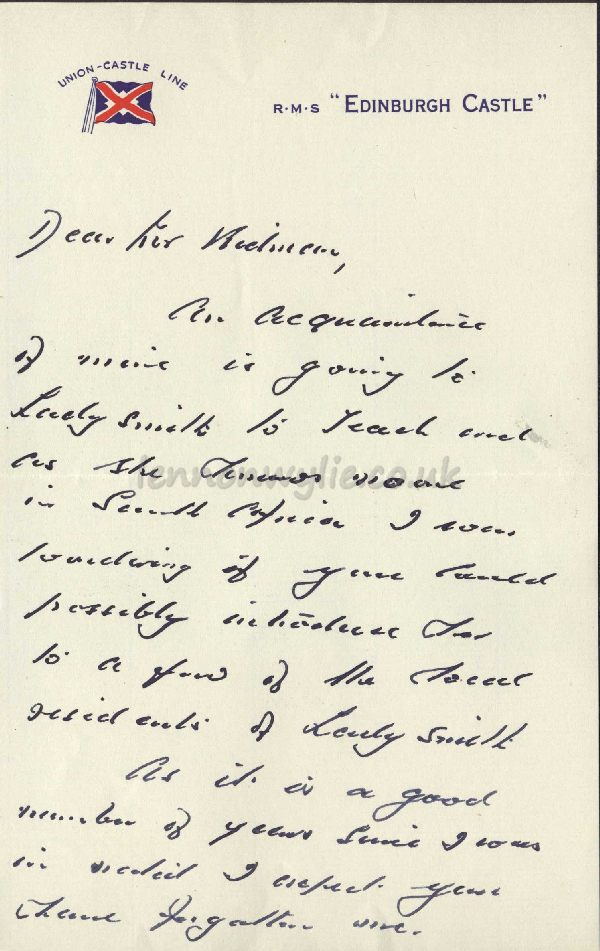 UNION-CASTLE LINE
R·M·S "EDINBURGH CASTLE"
Dear Mr
An acquaintance
of mine is going to
Ladysmith to teach and
as she knows no one
in South Africa I was
wondering if you could
possibly introduce her
to a few of the local
residents of Ladysmith
As it is a good
number of years since I was
in I expect you
have forgotten me.
lennonwylie.co.uk